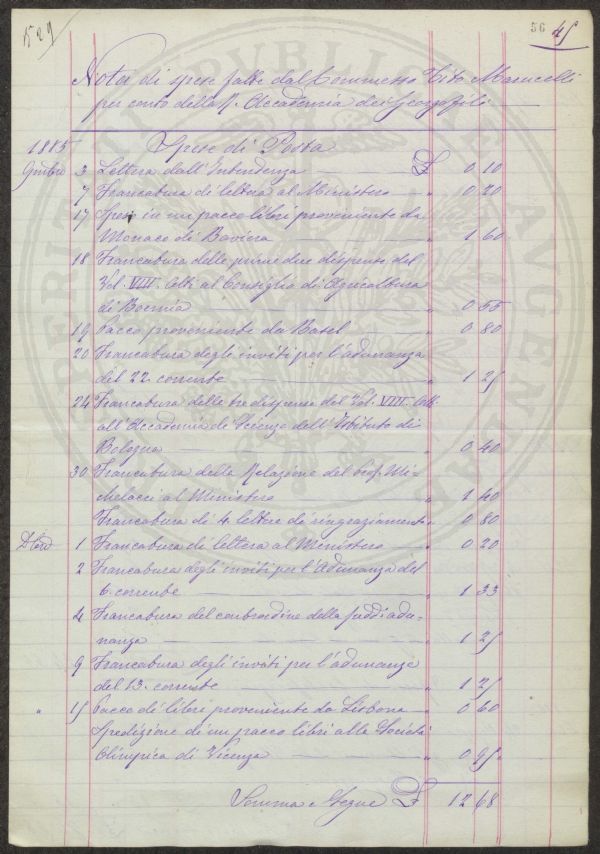 529
56 45
Nota di spese fatte dal Commesso Tito Marucelli
per conto della R. Accademia dei Georgofili
1885 Spese di Posta
9mbre 3 Lettera dall'Intendenza £ 0 10
7 Francatura di lettera al Ministero " 0 20
17 Spese in un pacco libri proveniente da
Monaco di Baviera " 1 60
18 Francatura delle prime due dispense del
Vol. VIII. Atti al Consiglio di Agricoltura
di Boemia " 0 55
19 Pacco proveniente da Basel " 0 80
20 Francatura degli inviti per l'adunanza
del 22. corrente " 1 25
24 Francatura delle tre dispense del Vol. VIII. Atti
all'Accademia di Scienze dell'Istituto di
Bologna " 0 40
30 Francatura della Relazione del Prof. Mi-
chelacci al Ministero " 1 40
Francatura di 4 lettere di ringraziamento " 0 80
Dbre 1 Francatura di lettera al Ministero " 0 20
2 Francatura degli inviti per l'Adunanza del
6. corrente " 1 33
4 Francatura del contrordine della sudd. adu-
nanza " 1 25
9 Francatura degli inviti per l'adunanza
del 13. corrente " 1 25
" 15 Pacco di libri proveniente da Lisbona " 0 60
Spedizione di un pacco libri alla Società
Olimpica di Vicenza " 0 95
Somma e Segue £ 12 68